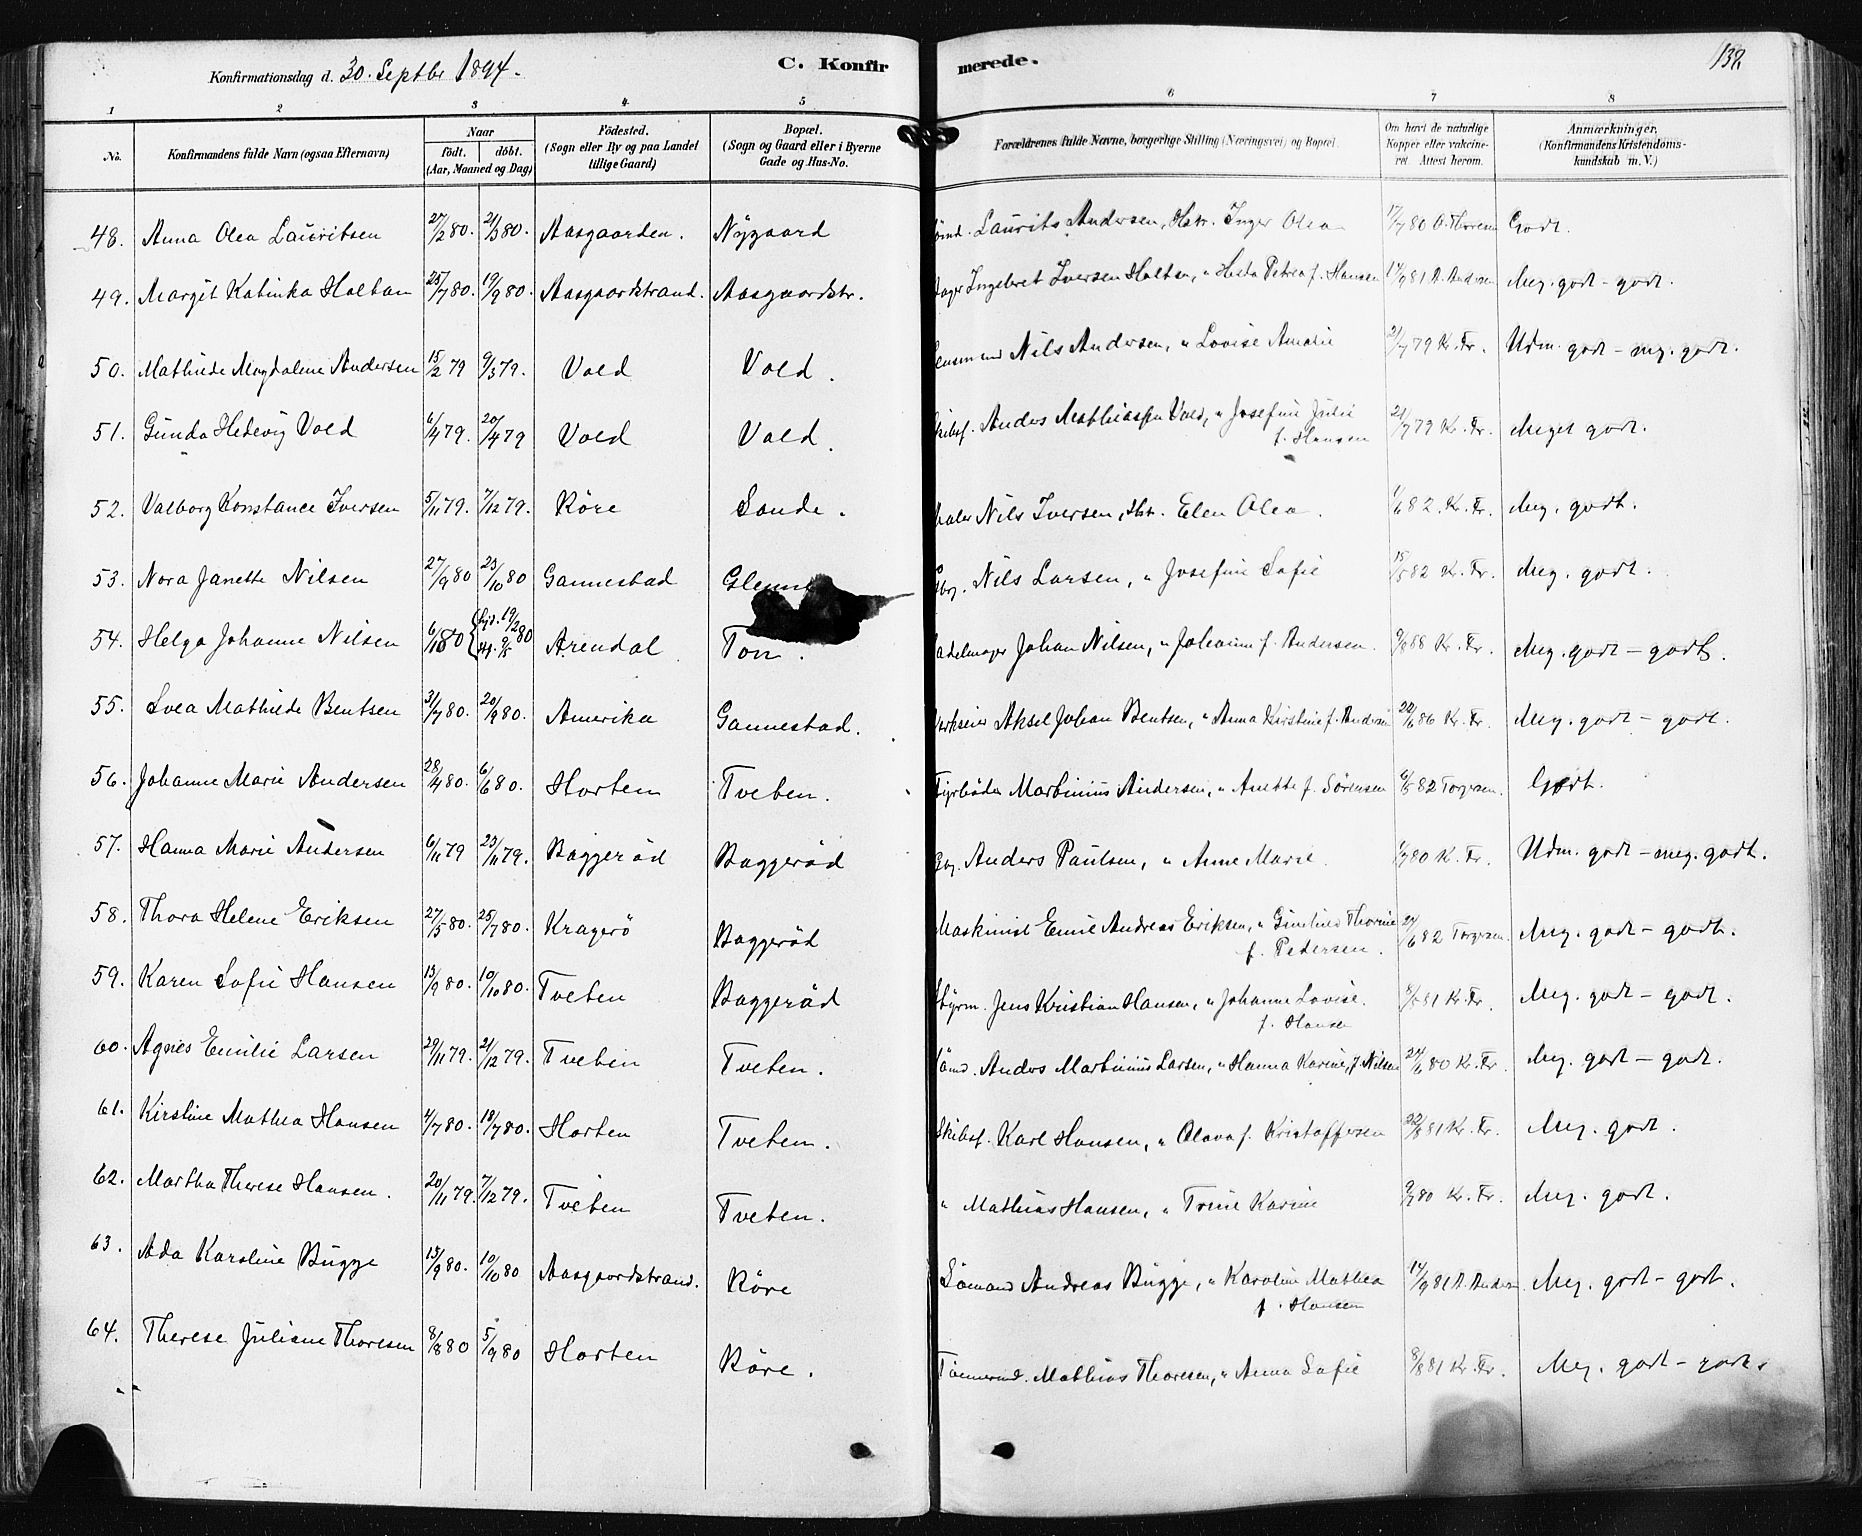 Konfirmationsdag d. 30. Septbr 1894.
C. Konfirmerede.
138.
1 2 3 4 5 6 7 8
No. Konfirmandens fulde Navn (ogsaa Efternavn) Naar födt. döbt. (Aar, Maaned og Dag) Födested. (Sogn eller By og paa Landet tillige Gaard) Bopæl. (Sogn og Gaard eller i Byerne Gade og Hus-No. Forældrenes fulde Navne, borgerlige Stilling (Næringsvei) og Bopæl. Om havt de naturlige Kopper eller vakcineret Attest herom. Anmærkninger, (Konfirmandens Kristendomskundskab m. V.)
48. Anna Olea Lauritsen 27/2 80. 21/3 80. Aasgaarden. Nygaard Laurits Andersen, Hstr. Inger Olea 17/7 80 O. Thoresen Godt.
49. Margit Katinka Holtan 25/7 80. 19/9 80. Aasgaardstrand. Aasgaardstr. Ingebret Iversen Holtan, " Hilda Petrea f. Hansen 14/9 81 A. Andersen Meg. godt – godt.
50. Mathilde Magdalene Andersen 15/2 79 9/3 79. Vold Vold. Nils Andersen, " Lovise Amalie 21/7 79 Kr. Fr. Udm. godt – meg. godt.
51. Gunda Hedevig Vold 6/4 79. 20/4 79 Vold Vold. Skibsf. Anders Mathiassen Vold, " Josefine Julie f. Hansen 21/7 79 Kr. Fr. Meget godt.
52. Valborg Konstance Iversen 5/11 79. 7/12 79. Röre Sande. Maler Nils Iversen, Hstr. Elen Olea. 1/6 82. Kr. Fr. Meg. godt.
53. Nora Janette Nilsen 27/9 80 23/10 80 Gannestad Nils Larsen, " Josefine Sofie 15/5 82 Kr. Fr. Meg. godt.
54. Helga Johanne Nilsen 6/1 80 {hjd. 19/2 80 Arendal Ton. Johan Nilsen, " Johanne f. Andersen. 9/8 88 Kr. Fr. Meg. godt – godt.
55. Svea Mathilde Bentsen 31/7 80. 20/9 80. Amerika Gannestad. Aksel Johan Bentsen, " Anna Kirstine f. Andersen 22/6 86 Kr. Fr. Meg. godt – godt.
56. Johanne Marie Andersen 28/4 80. 6/6 80. Horten Tveten. Fyrböder Martinius Andersen, " Anette f. Sörensen 6/5 82 Torgersen. Godt.
57. Hanna Marie Andersen 6/11 79 23/11 79. Baggeröd Baggeröd Gbg. Anders Paulsen, " Anne Marie. 1/7 80 K. Fr. Udm. godt – meg. godt.
58. Thora Helene Eriksen 27/5 80. 25/7 80. Kragerö Baggeröd Maskinist Emil Andreas Eriksen, " Gunhild Thorine f. Pedersen. 24/6 82 Torgersen. Meg. godt – godt.
59. Karen Sofie Hansen 13/9 80. 10/10 80. Tveten Baggeröd Styrm. Jens Kristian Hansen, " Johanne Lovise. f. Hansen 81 Kr. Fr. Meg. godt – godt.
60. Agnes Emilie Larsen 29/11 79. 21/12 79. Tveten Tveten. Sömd. Anders Martinius Larsen, " Hanna Karine, f. Nilsen 24/6 80 Kr. Fr. Meg. godt – godt.
61. Kirstine Mathea Hansen 4/7 80. 18/7 80. Horten Tveten. Skibsf. Karl Hansen, " Olava f. Kristoffersen 22/8 81 Kr. Fr. Meg. godt.
62. Martha Therese Hansen. 20/11 79. 7/12 79. Tveten Tveten. " Mathias Hansen, " Trine Karine 9/7 80 Kr. Fr. Meg. godt.
63. Ada Karoline Bugge 13/9 80. 10/10 80 Aasgaardstrand. Röre Sömand Andreas Bugge, " Karoline Mathea f. Hansen 14/9 81 A. Andersen Meg. godt – godt.
64. Therese Juliane Thoresen 8/8 80 5/9 80 Horten Röre. Tömmermd. Mathias Thoresen, " Anna Sofie 8/8 81 Kr. Fr. Meg. godt – godt.